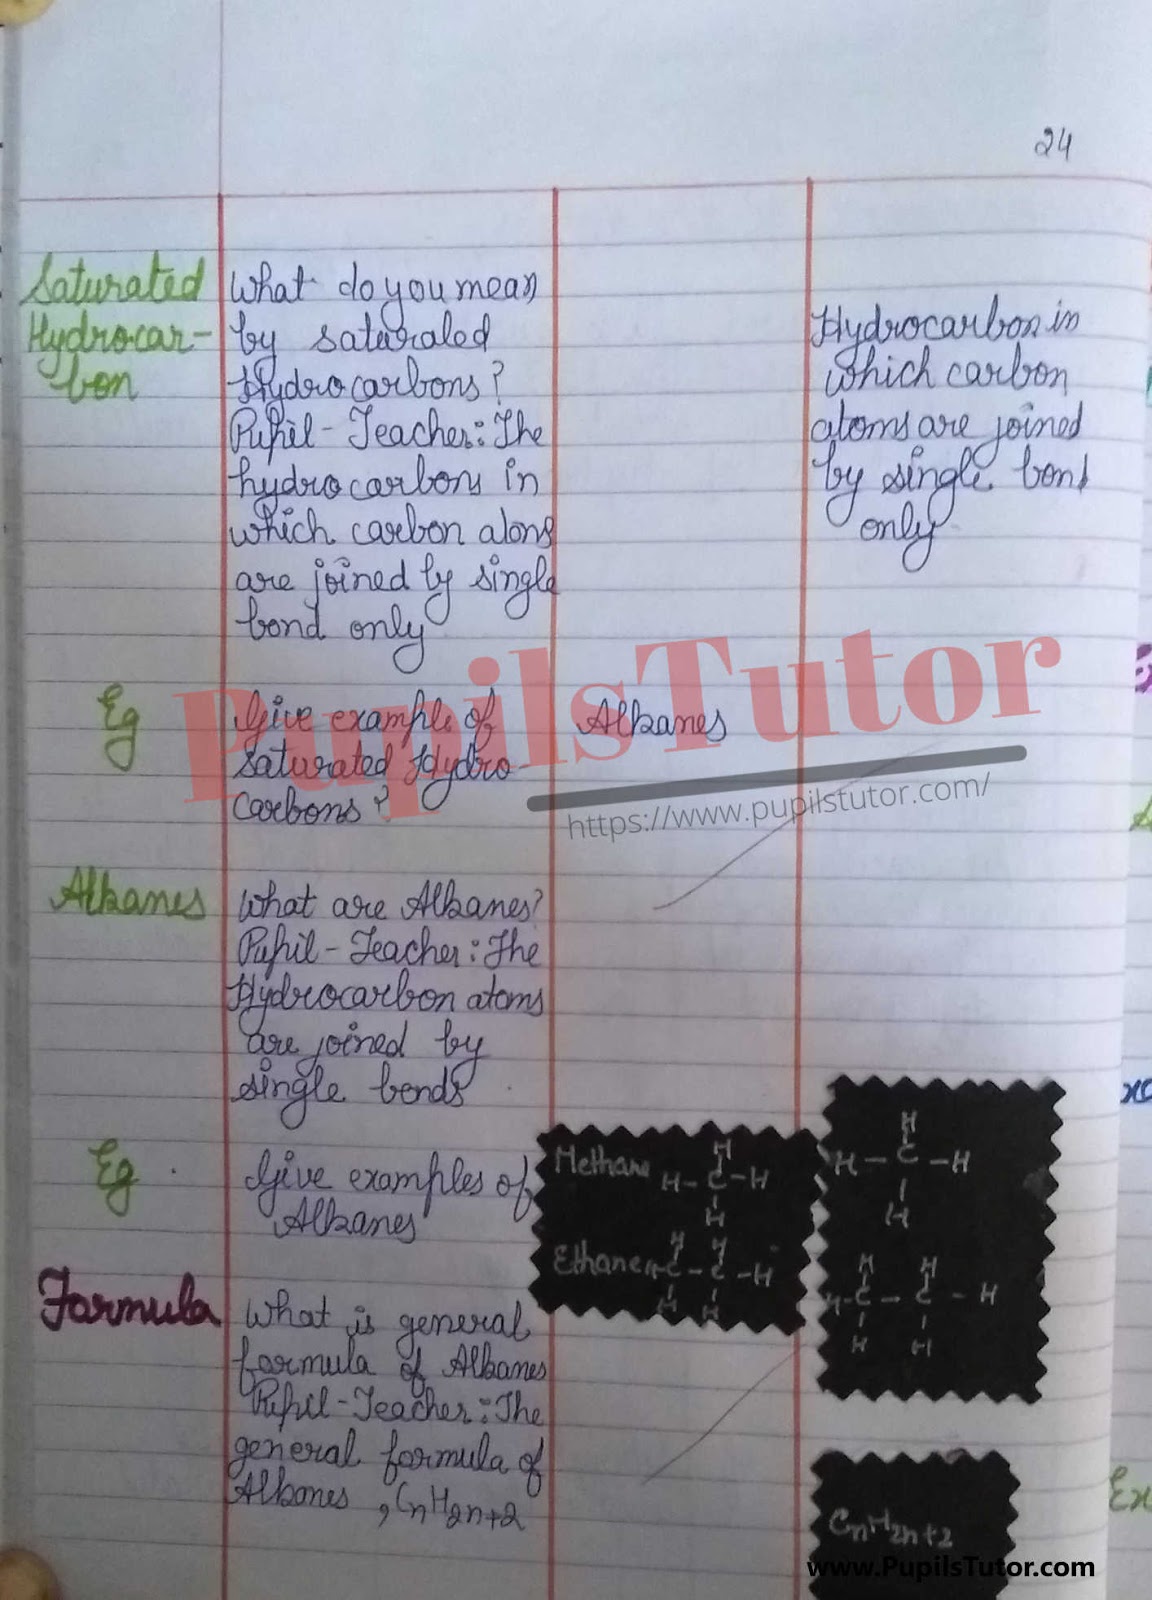 24
Saturated
Hydrocar-
bon
What do you mean
by saturated
Hydrocarbons?
Pupil-Teacher: The
hydrocarbons in
which carbon atoms
are joined by single
bond only
Hydrocarbon in
which carbon
atoms are joined
by single bond
only
Eg
Give example of
saturated Hydro-
carbons?
Alkanes
PupilsTutor
https://www.pupilstutor.com/
Alkanes
What are Alkanes?
Pupil-Teacher: The
Hydrocarbon atoms
are joined by
single bonds
Eg
Give examples of
Alkanes
Methane
H
H-C-H
H
Ethane
H H
H-C-C-H
H H
H
H-C-H
H
H H
H-C-C-H
H H
Formula
What is general
formula of Alkanes
Pupil-Teacher: The
general formula of
Alkanes, CnH2n+2
CnH2n+2
www.PupilsTutor.com